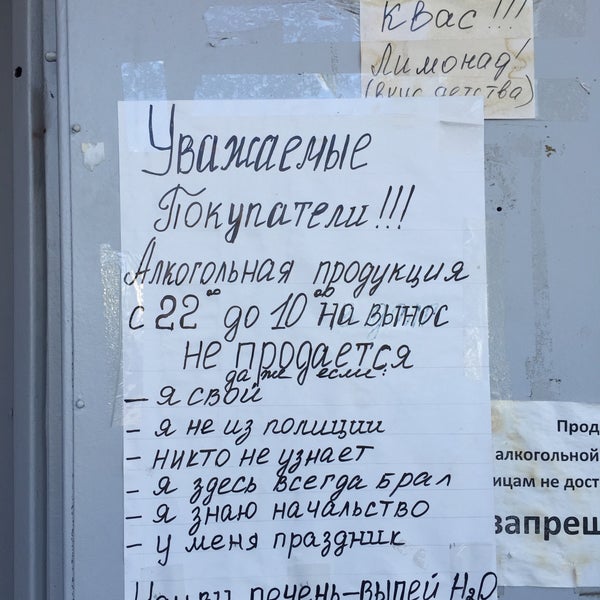 Квас!!!
Лимонад!
(вкус детства)
Уважаемые
Покупатели!!!
Алкогольная продукция
с 22⁰⁰ до 10⁰⁰ на вынос
не продается
даже если:
– я свой
– я не из полиции
– никто не узнает
– я здесь всегда брал
– я знаю начальство
– у меня праздник
печень–выпей H₂O
Прод
алкогольной
ицам не дост
запрещ